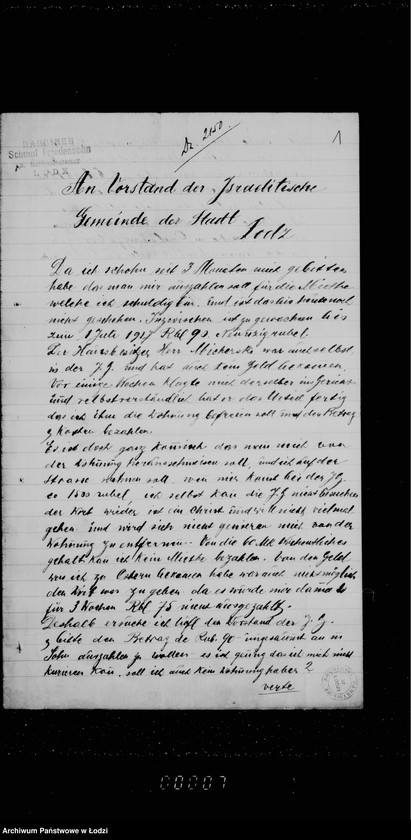 Dz. 2150
1
DAROWNEK
LODZ
An Vorstand der Israelitische
Gemeinde der Stadt
Lodz
Da ich schohn seit 3 Monaten mich gebitten
habe das man mir auszahlen soll für die Miethe
welche ich schuldig bin. und ist das bis heute noch
nicht geschehen. Inzwischen ist zu gewachsen bis
zum 1 Juli 1917 Rbl 90 Neunzig rubel.
Der Hausbesitzer Herr war auch selbst
in der J. G. und hat auch kein Geld bekommen,
Vor einige Wochen klagte mich derselber ins Gericht
und selbstverständlich hat er das Urteil fertig
das ich ihm die Wohnung befreien soll und den Betrag
z Kosten bezahlen.
Es ist doch ganz komisch das man mich von
der Wohnung herausschmeissen soll, und ich auf der
Strasse wohnen soll. wen mir komt bei der J. G.
co rubel, ich selbst kan die J. G. nicht brauchen
der Wirt wieder ist ein Christ und will nicht vielmal
gehen und wird sich nicht genieren mich von der
Wohnung zu entfernen. Von die 60 Mk Wochentliches
gehalt kan ich kein Miethe bezahlen. Von den Geld
was ich zu Ostern bekommen habe war auch nicht möglich
den Wirt was zu geben da es wurde mir damals
für 3 Wochen Rbl 75 nicht ausgezahlt.
Deshalb ersuche ich höfl den Vorstand der J. G.
z bitte den Betrag de Rub. 90 ungesäumt an m
Sohn auszahlen zu wollen es ist genug das ich mich nicht
kurieren kan, soll ich auch kein Wohnung haben?
verte
00007
Archiwum Państwowe w Łodzi